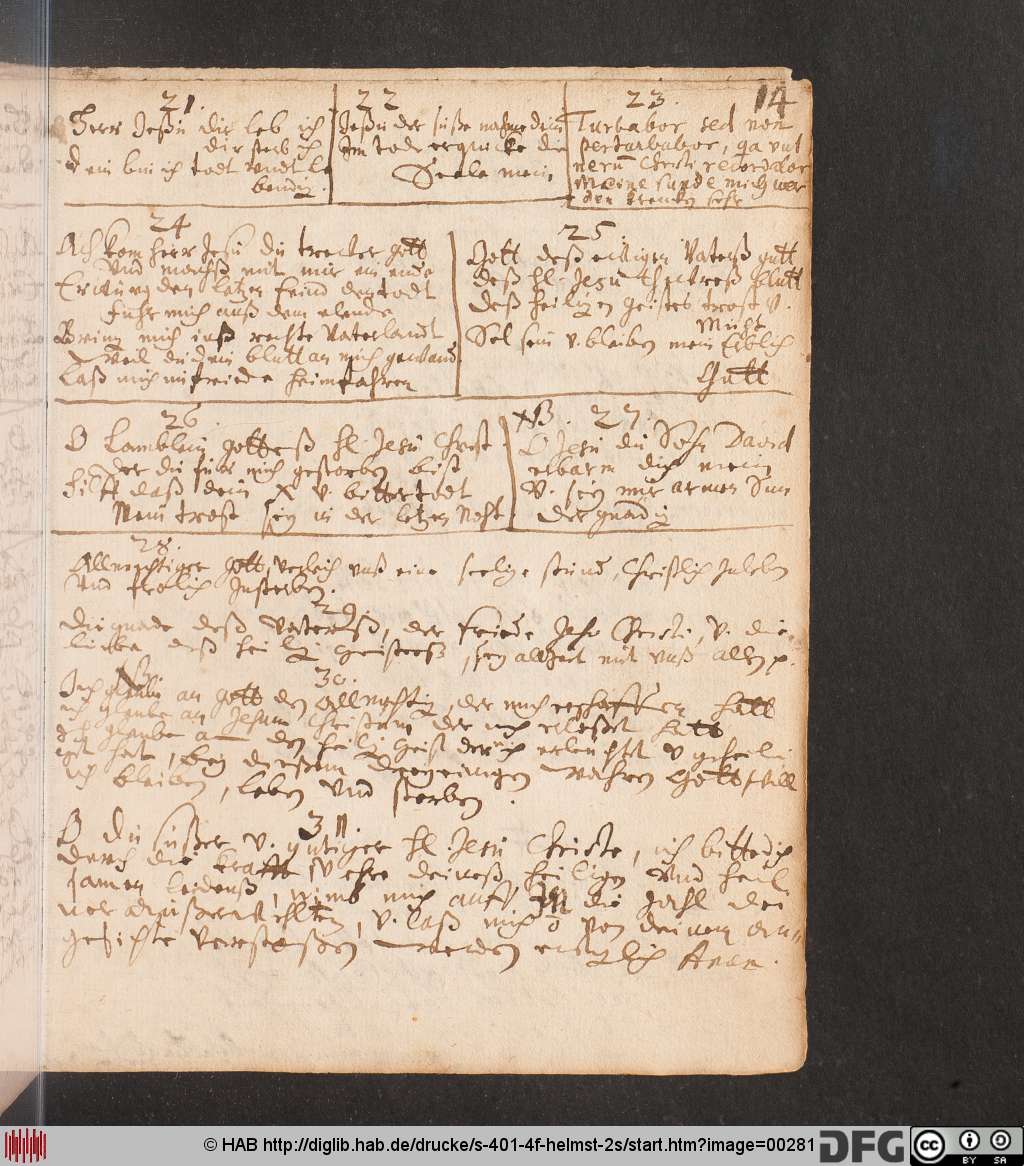 14
21.
Herr Jesu dir leb ich
dir sterb ich
dein bin ich todt undt le
bendig.
22
Jesu der süße nahme dein
Im tod erquicke die
Seele mein
23.
Turbabor sed non
perturbabor, qa vul
nerum Christi recordabor
Meine sunde mich wer
den krenken sehr
24
Ach kom herr Jesu du trewer gott
Und machß mit mir ein ende
Erwürg den letzen feind den todt
führ mich auß dem elende
Bring mich inß rechte Vaterlandt
Weil du dein blutt an mich gewand
Laß mich mit friede heimfahren
25.
Gott deß ewigen Vaterß gütt
deß hl. Jesu theureß blutt
deß heiligen geistes trost v.
Muht
Sol sein v. bleiben mein Erblich
Gutt
26.
O Lamblein gotteß hl. Jesu Christ
der du für mich gestorben bist
Hilff daß dein X v. bitter todt
Mein trost sey in der letzen Noht
NB. 27.
O Jesu du Sohn David
erbarm dich mein
V. sey mir armen Sun
der gnädig
28.
Allmechtiger gott, verleih unß eine seelige stund, Christlich zuleben
und frolich zusterben.
29.
Die gnade deß Vaterß, der friede Jesu Christi, v. die
liebe deß heilig geisteß, sey allzeit mit unß allen
NB. 30.
Ich glaube an gott den Allmechtig, der mich erschaffen hatt
ich glaube an Jesum Christum der mich erlöset hatt
Ich glaube an den heilig Geist der mich erleuchtet v geheili
get hat, bey diesem dreyeinigen wahren Gott will
ich bleiben, leben und sterben.
31.
O du süßer v. gütiger hl Jesu Christe, ich bitte dich
durch die krafft v ehre deineß heiligen und heil
samen leidenß, nimb mich auff in die zahl dei
ner außerwehlten, v. laß mich von deinem an
gesichte verstoßen werden ewiglich Amen.
© HAB http://diglib.hab.de/drucke/s-401-4f-helmst-2s/start.htm?image=00281
DFG
cc BY SA